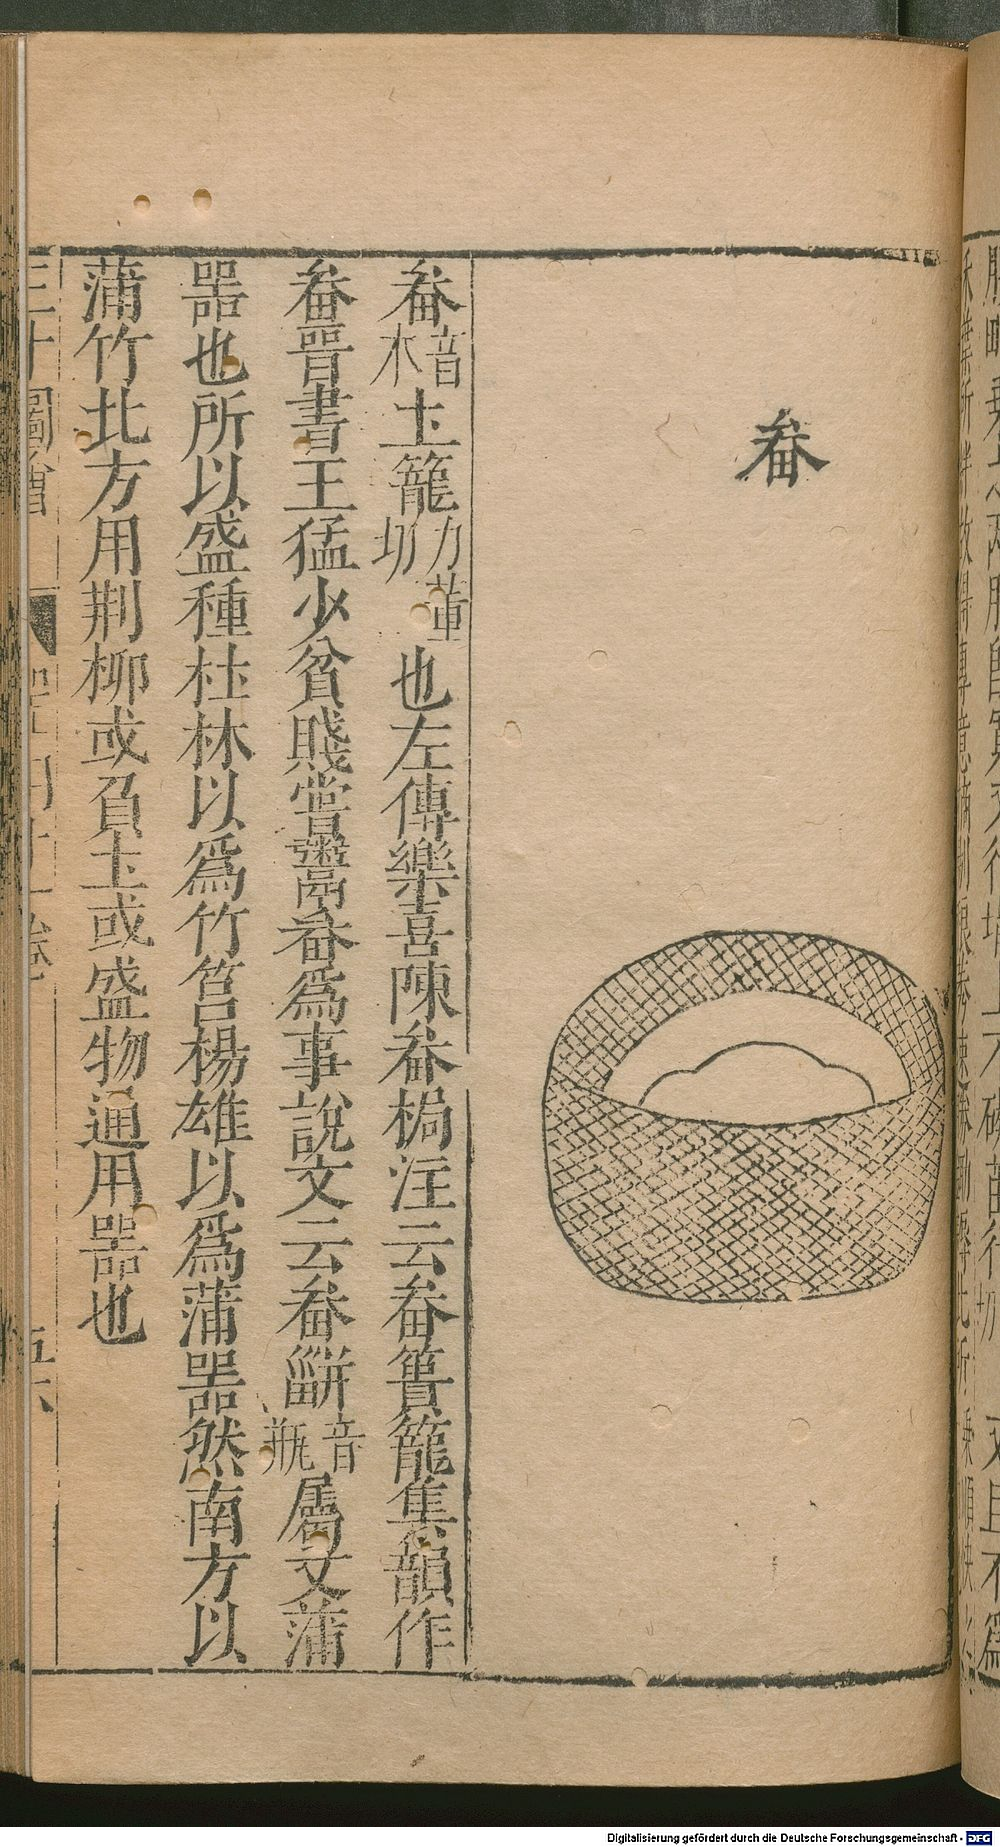 畚
畚音本圡籠力董切也左傳樂喜陳畚梮注云畚簣籠集韻作
畚晉書王猛少貧賤嘗鬻畚爲事說文云畚缾音瓶屬又蒲
噐也所以盛種杜林以爲竹筥楊雄以爲蒲噐然南方以
蒲竹北方用荆柳或負圡或盛物通用噐也
三才圖會 器用十一卷 五六
Digitalisierung gefördert durch die Deutsche Forschungsgemeinschaft - DFG